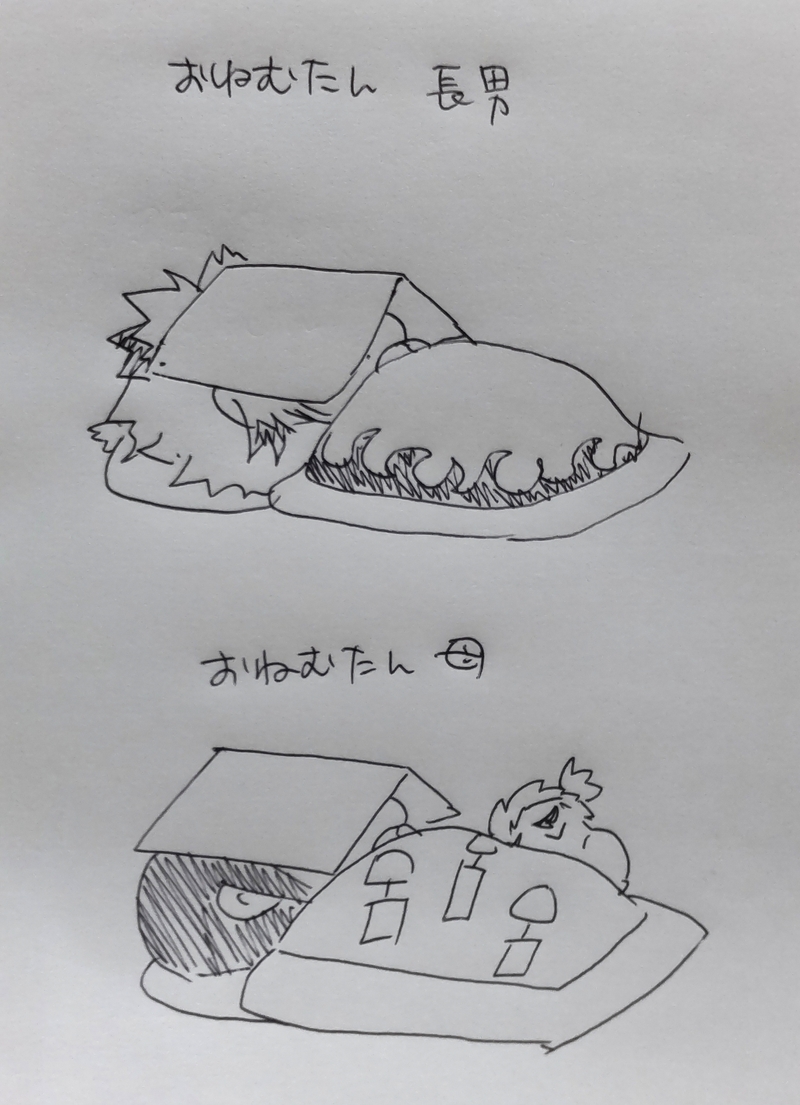 おねむたん 長男
おねむたん 母